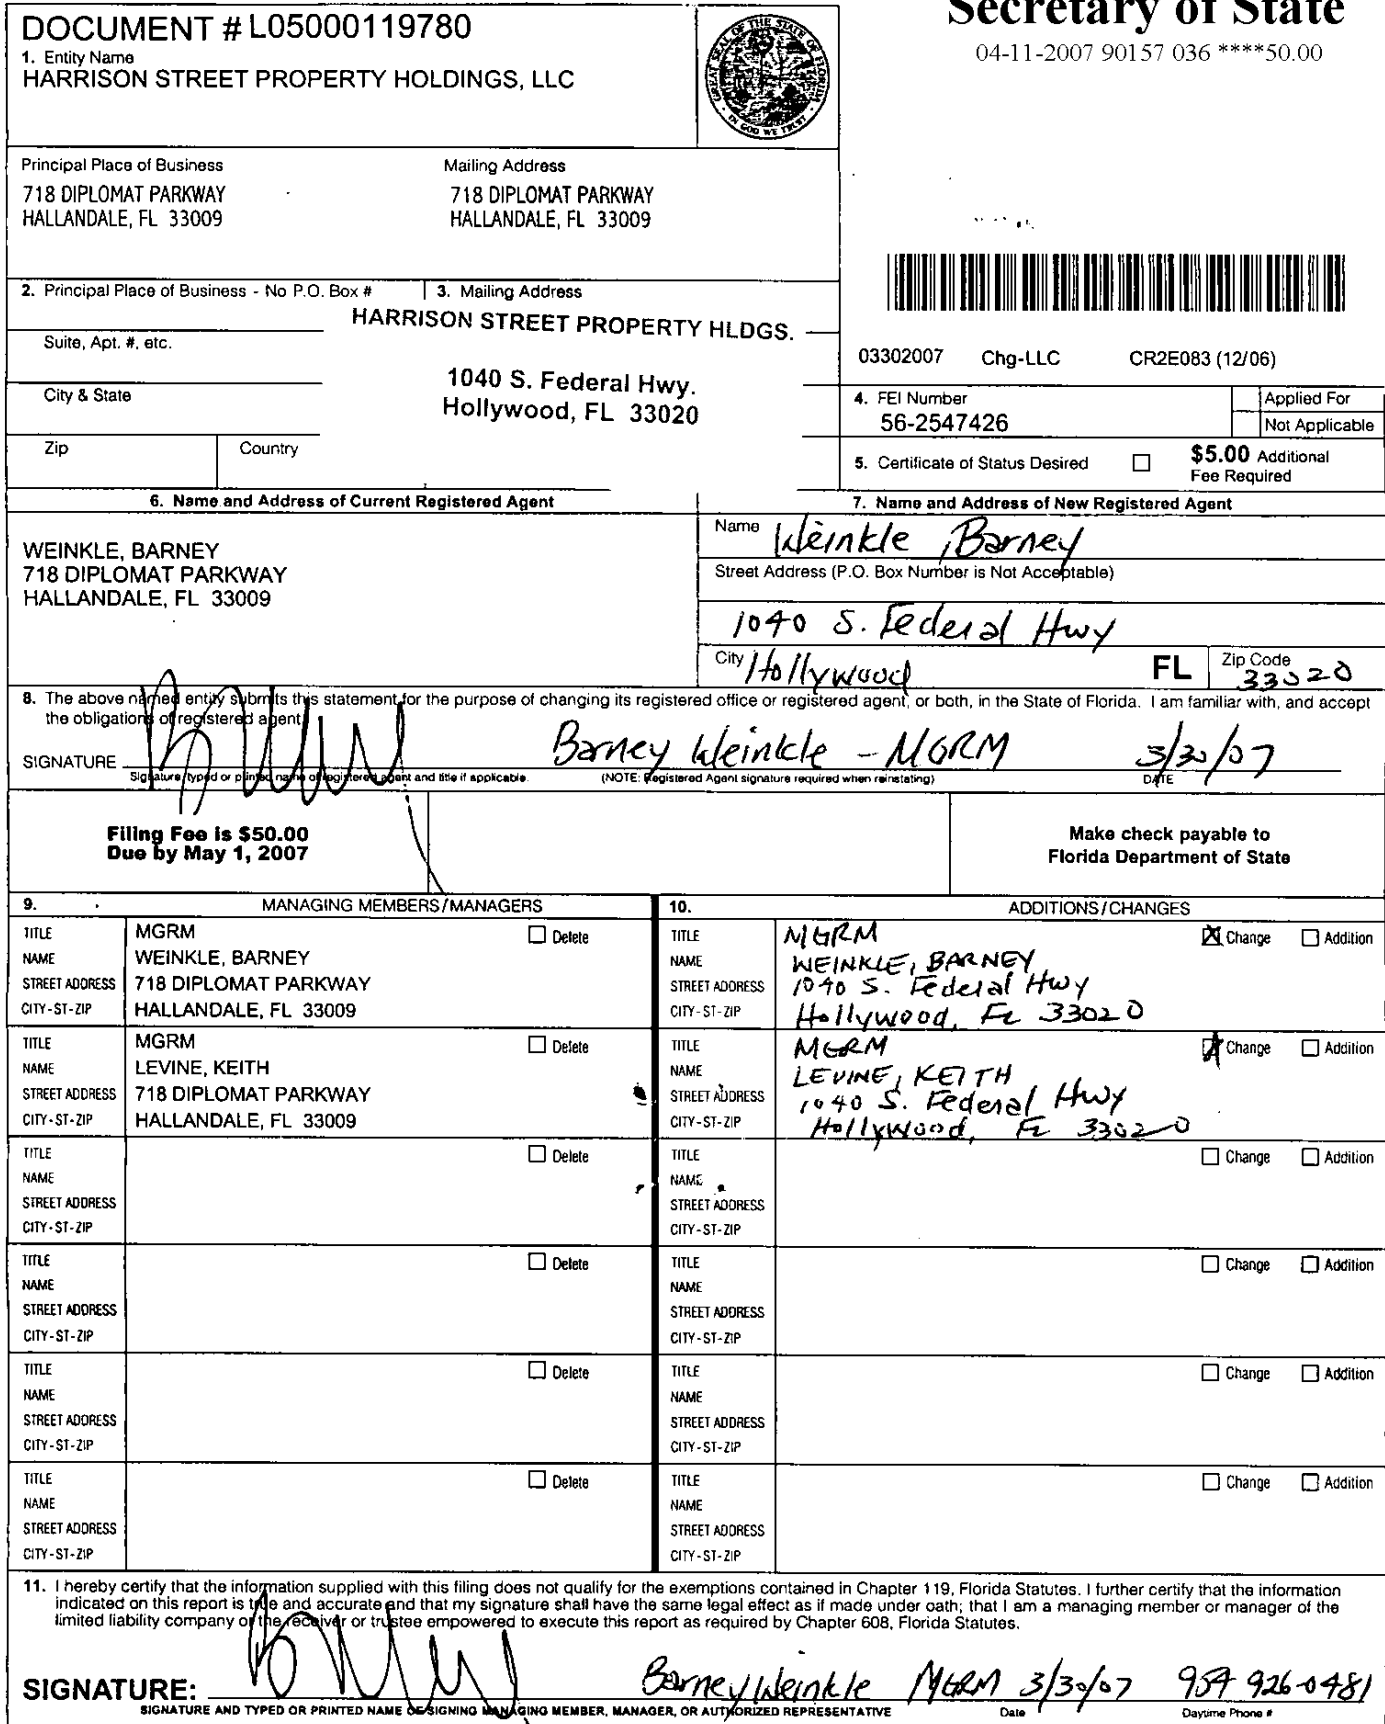 Secretary of State
04-11-2007 90157 036 ****50.00
DOCUMENT # L05000119780
1. Entity Name
HARRISON STREET PROPERTY HOLDINGS, LLC
GREAT SEAL OF THE STATE OF FLORIDA
IN GOD WE TRUST
Principal Place of Business
718 DIPLOMAT PARKWAY
HALLANDALE, FL 33009
Mailing Address
718 DIPLOMAT PARKWAY
HALLANDALE, FL 33009
2. Principal Place of Business - No P.O. Box #
3. Mailing Address
HARRISON STREET PROPERTY HLDGS.
Suite, Apt. #, etc.
1040 S. Federal Hwy.
City & State
Hollywood, FL 33020
Zip
Country
03302007 Chg-LLC CR2E083 (12/06)
4. FEI Number
56-2547426
Applied For
Not Applicable
5. Certificate of Status Desired
$5.00 Additional
Fee Required
6. Name and Address of Current Registered Agent
WEINKLE, BARNEY
718 DIPLOMAT PARKWAY
HALLANDALE, FL 33009
7. Name and Address of New Registered Agent
Name Weinkle, Barney
Street Address (P.O. Box Number is Not Acceptable)
1040 S. Federal Hwy
City Hollywood FL Zip Code 33020
8. The above named entity submits this statement for the purpose of changing its registered office or registered agent, or both, in the State of Florida. I am familiar with, and accept
the obligations of registered agent.
SIGNATURE Barney Weinkle - MGRM 3/30/07
Signature, typed or printed name of registered agent and title if applicable. (NOTE: Registered Agent signature required when reinstating) DATE
Filing Fee is $50.00
Due by May 1, 2007
Make check payable to
Florida Department of State
9. MANAGING MEMBERS/MANAGERS
10. ADDITIONS/CHANGES
TITLE MGRM Delete
NAME WEINKLE, BARNEY
STREET ADDRESS 718 DIPLOMAT PARKWAY
CITY-ST-ZIP HALLANDALE, FL 33009
TITLE MGRM Change Addition
NAME WEINKLE, BARNEY
STREET ADDRESS 1040 S. Federal Hwy
CITY-ST-ZIP Hollywood, FL 33020
TITLE MGRM Delete
NAME LEVINE, KEITH
STREET ADDRESS 718 DIPLOMAT PARKWAY
CITY-ST-ZIP HALLANDALE, FL 33009
TITLE MGRM Change Addition
NAME LEVINE, KEITH
STREET ADDRESS 1040 S. Federal Hwy
CITY-ST-ZIP Hollywood, FL 33020
TITLE Delete
NAME
STREET ADDRESS
CITY-ST-ZIP
TITLE Change Addition
NAME
STREET ADDRESS
CITY-ST-ZIP
TITLE Delete
NAME
STREET ADDRESS
CITY-ST-ZIP
TITLE Change Addition
NAME
STREET ADDRESS
CITY-ST-ZIP
TITLE Delete
NAME
STREET ADDRESS
CITY-ST-ZIP
TITLE Change Addition
NAME
STREET ADDRESS
CITY-ST-ZIP
TITLE Delete
NAME
STREET ADDRESS
CITY-ST-ZIP
TITLE Change Addition
NAME
STREET ADDRESS
CITY-ST-ZIP
11. I hereby certify that the information supplied with this filing does not qualify for the exemptions contained in Chapter 119, Florida Statutes. I further certify that the information
indicated on this report is true and accurate and that my signature shall have the same legal effect as if made under oath; that I am a managing member or manager of the
limited liability company or the receiver or trustee empowered to execute this report as required by Chapter 608, Florida Statutes.
SIGNATURE: Barney Weinkle MGRM 3/30/07 954 926-0481
SIGNATURE AND TYPED OR PRINTED NAME OF SIGNING MANAGING MEMBER, MANAGER, OR AUTHORIZED REPRESENTATIVE Date Daytime Phone #